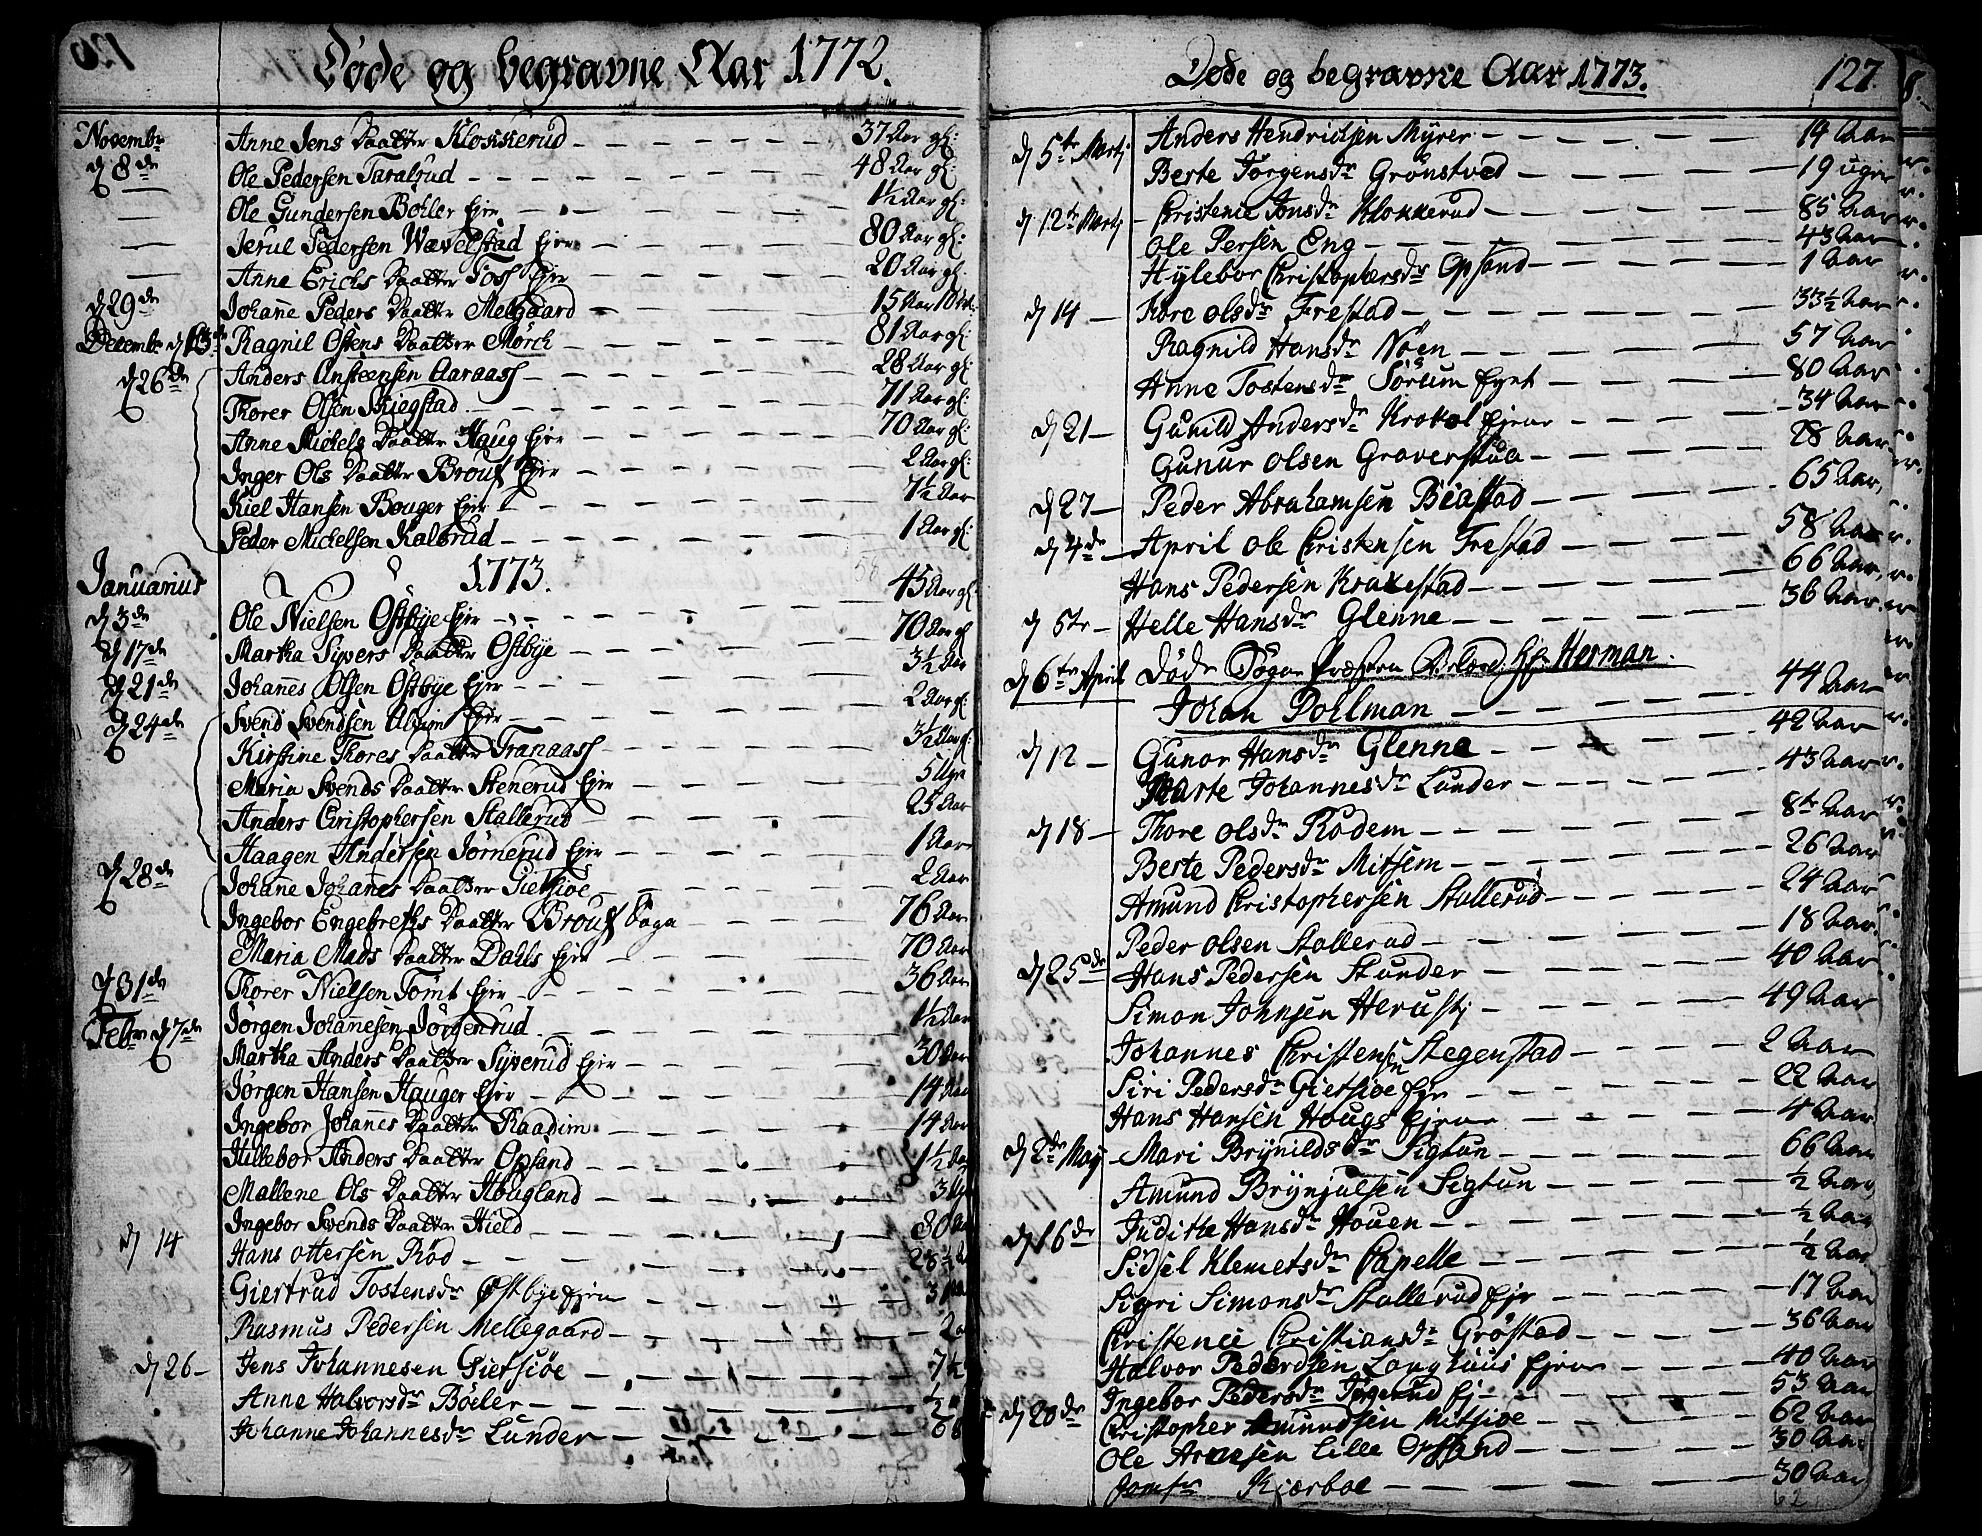 Døde og begravne Aar 1772.
Novembr Anne Jens Daatter Klokkerud 37 Aar gl:
d 8de Ole Pedersen Taralrud 48 Aar gl:
Ole Gundersen Bohler Ejer 1½ Aar gl:
Jerul Pedersen Wævelstad Ejer 80 Aar gl:
Anne Erichs Daatter Foss Ejer 20 Aar gl
d 29de Johañe Peders Daatter Melgaard 15 Aar
Decembr d 13de Ragnil Ostens Daatter Mörch 81 Aar gl:
d 26de Anders Ansteensen Aaraass 28 Aar gl:
Thorer Olsen Skiegstad 71 Aar gl:
Anne Michels Daatter Haug Ejer 70 Aar gl:
Inger Ols Daatter Brouss Ejer 2 Aar gl:
Kiel Hansen Bouger Ejer 7½ Aar
Peder Michelsen Kalsrud 1 Aar gl:
Januarius 1773.
d 3de Ole Nielsen Østbye Ejer 45 Aar gl:
d 17de Martha Syvers Daatter Østbye 70 Aar gl
d 21de Johañes Olsen Østbye Ejer 3½ Aar
d 24de Svend Svendsen Alvim Ejer 2 Aar gl:
Kirstine Thores Daatter Tranaass 3½ Aar gl:
Maria Svends Daatter Stenerud Ejer 5 Uger
Anders Christophersen Stallerud 25 Aar
Haagen Andersen Jørnerud Ejer 1 Aar
d 28de Johañe Johañes Daatter Gietsiøe 2 Aar
Ingebor Engebreths Daatter Brouss Saga 76 Aar
Maria Mads Daatter Dahls Ejer 70 Aar
d 31de Thorer Nielsen Tomt Ejer 36 Aar
Febr d 7de Jørgen Johañesen Jørgenrud 1½ Aar
Martha Anders Daatter Syverud Ejer 30 Aar
Jørgen Hansen Hauger Ejer 14 Aar
Ingebor Johañes Daatter Raadim 14 Aar
Hillebor Anders Daatter Opsand 1½ Aar
Mallene Ols Daatter Hougland 3 Uger
Ingebor Svends Daatter Hield 80 Aar
d 14 Hans Ottersen Röd 28½
Giertrud Tostensdr Østbye Ejer 31
Rasmus Pedersen Mellegaard 2 aar
d 26 Jens Johannesen Gietsiøe 7½
Anne Halvorsdr Böeler ½
Johanne Johannesdr Lunder 66
Døde og begravne Aar 1773. 127.
d 5te Martj Anders Hendrichsen Myrer 14 Aar
Berte Jørgensdr Grönstved 19 uger
d 12te Martj Christenie Jonsdr Klokkerud 85 Aar
Ole Persen Eng 43 Aar
Hylebor Christophersdr Opsand 1 Aar
d 14 Kore Olsdr Frestad 33½ Aar
Ragnild Hansdr Nöen 57 Aar
Anne Tostensdr Sörum Eynt 80 Aar
d 21 Gunild Andersdr Krokol Ejer 34 Aar
Gunur Olsen Graverstua 28 Aar
d 27 Peder Abrahamsen Biastad 65 Aar,
d 4de April Ole Christensen Frestad 58 Aar
Hans Pedersen Krakestad 66 Aar,
d 5te Helle Hansdr Glenne 36 Aar
d 6te April Döde Sogne Præsten Hr Herman
Johan Pohlman 44 Aar
d 12 Gunor Hansdr Glenne 42 Aar
Marte Johannesdr Lunder 43 Aar
d 18 Thore Olsdr Rødem 8te Aar
Berte Pedersdr Mitsem 26 Aar
Amund Christophersen Stallerud 24 Aar
Peder Olsen Stallerud 18 Aar
d 25de Hans Pedersen Stunder 40 Aar
Simon Johnsen Herustj 49 Aar
Johannes Christensen Stegenstad 2 Aar
Siri Pedersdr Gietsioe Ejr 22 Aar
Hans Hansen Hougs Ejer 4 Aar
d 2de Maj Mari Brynildsdr Sigtun 66 Aar
Amund Brynjulsen Sigtun ½ Aar
d 16de Judithe Hansdr Houen ½ Aar
Sidsel Klemetsdr Capelle ½ Aar
Sigri Simonsdr Stallerud Ejr 17 Aar
Christenie Christiansdr Gröstad 36 Aar
Halvor Pedersen Langhuus Ejer 40 Aar
Ingebor Pedersdr Jögerud Ej 53 Aar
d 20de Christopher Amundsen Mitsioe 62 Aar
Ole Arnesen Lille Opsand 30 Aar
Jomfr Kierboe 30 Aar
62